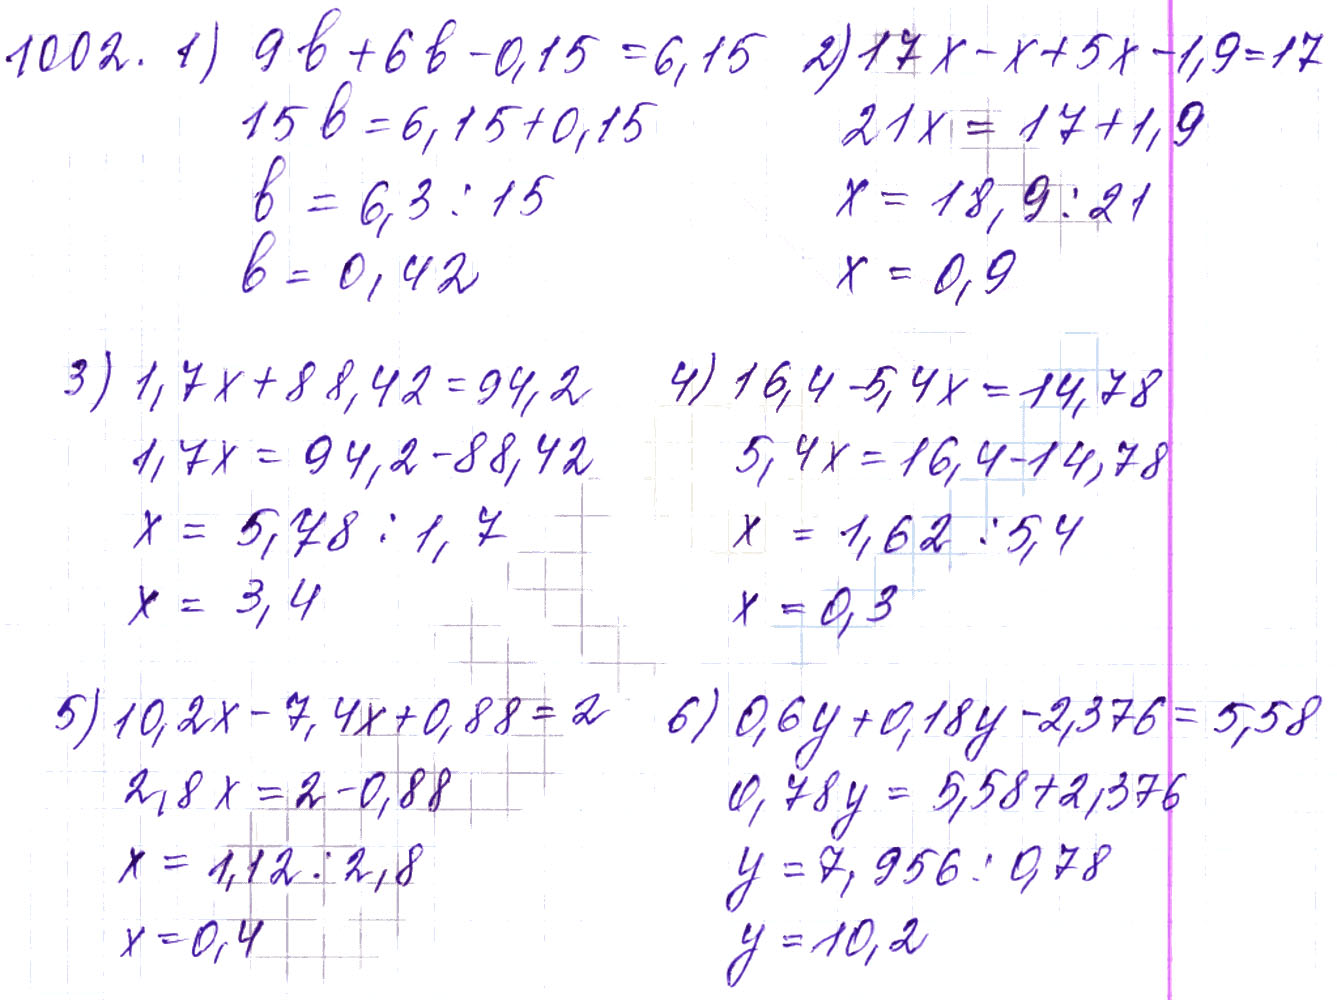 1002. 1) 9в+6в-0,15=6,15 2) 17x-x+5x-1,9=17
15в=6,15+0,15 21x=17+1,9
в=6,3:15 x=18,9:21
в=0,42 x=0,9
3) 1,7x+88,42=94,2 4) 16,4-5,4x=14,78
1,7x=94,2-88,42 5,4x=16,4-14,78
x=5,78:1,7 x=1,62:5,4
x=3,4 x=0,3
5) 10,2x-7,4x+0,88=2 6) 0,6y+0,18y-2,376=5,58
2,8x=2-0,88 0,78y=5,58+2,376
x=1,12:2,8 y=7,956:0,78
x=0,4 y=10,2